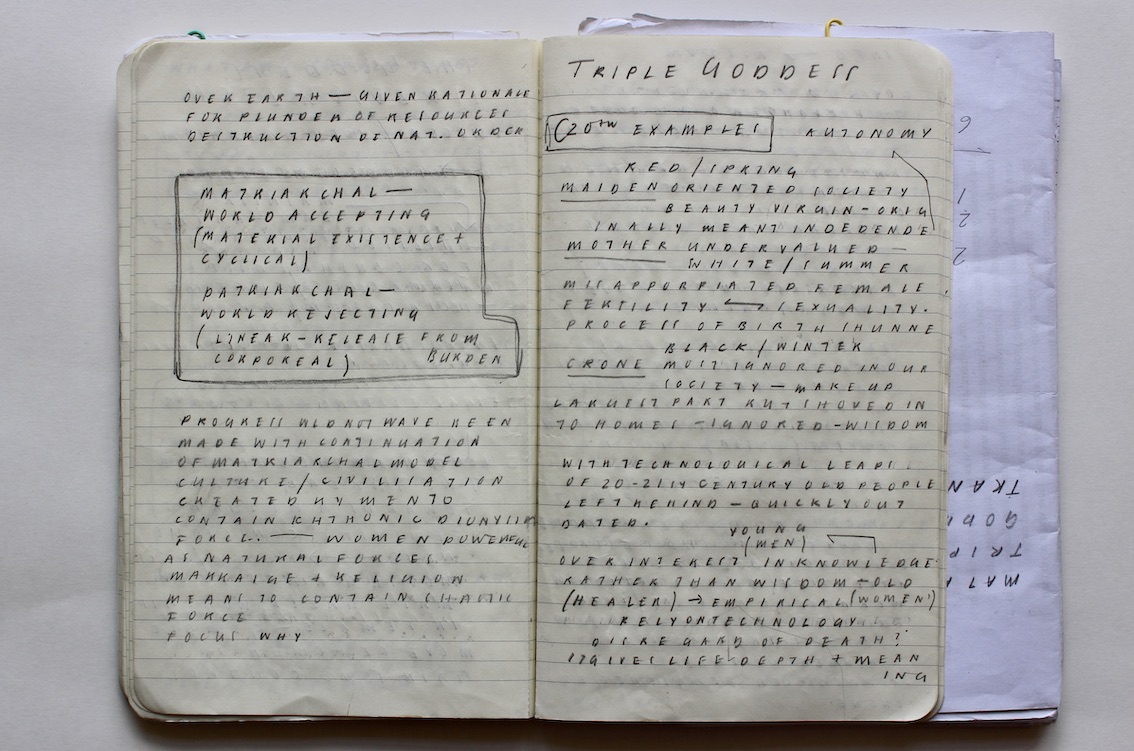 OVER EARTH — GIVEN RATIONALE
FOR PLUNDER OF RESOURCES
DESTRUCTION OF NAT. ORDER
MATRIARCHAL —
WORLD ACCEPTING
(MATERIAL EXISTENCE +
CYCLICAL)
PATRIARCHAL —
WORLD REJECTING
(LINEAR - RELEASE FROM
CORPOREAL) BURDEN
PROGRESS WLD NOT HAVE BEEN
MADE WITH CONTINUATION
OF MATRIARCHAL MODEL
CULTURE / CIVILISATION
CREATED BY MEN TO
CONTAIN KHTHONIC DIONYSIAN
FORCE. — WOMEN POWERFUL
AS NATURAL FORCES
MARRAIGE + RELIGION
MEANS TO CONTAIN CHAOTIC
FORCE
FOCUS WHY
TRIPLE GODDESS
(20TH EXAMPLES AUTONOMY
RED / SPRING
MAIDEN ORIENTED SOCIETY
BEAUTY VIRGIN - ORIG
INALLY MEANT INDEDENDE
MOTHER UNDERVALUED —
WHITE / SUMMER
MISAPPORPIATED FEMALE
FERTILITY ⟷ SEXUALITY.
PROCESS OF BIRTH SHUNNE
BLACK / WINTER
CRONE MOST IGNORED IN OUR
SOCIETY — MAKE UP
LARGEST PART BUT SHOVED IN
TO HOMES - IGNORED - WISDOM
WITH TECHNOLOGICAL LEAPS
OF 20-21ST CENTURY OLD PEOPLE
LEFT BEHIND - QUICKLY OUT
DATED.
YOUNG
(MEN)
OVER INTEREST IN KNOWLEDGE
RATHER THAN WISDOM - OLD
(HEALER) → EMPIRICAL (WOMEN!)
RELY ON TECHNOLOGY
DISREGARD OF DEATH?
GIVES LIFE DEPTH + MEAN
ING
6
1
2
2
TRAN
GODD
TRIP
MAT